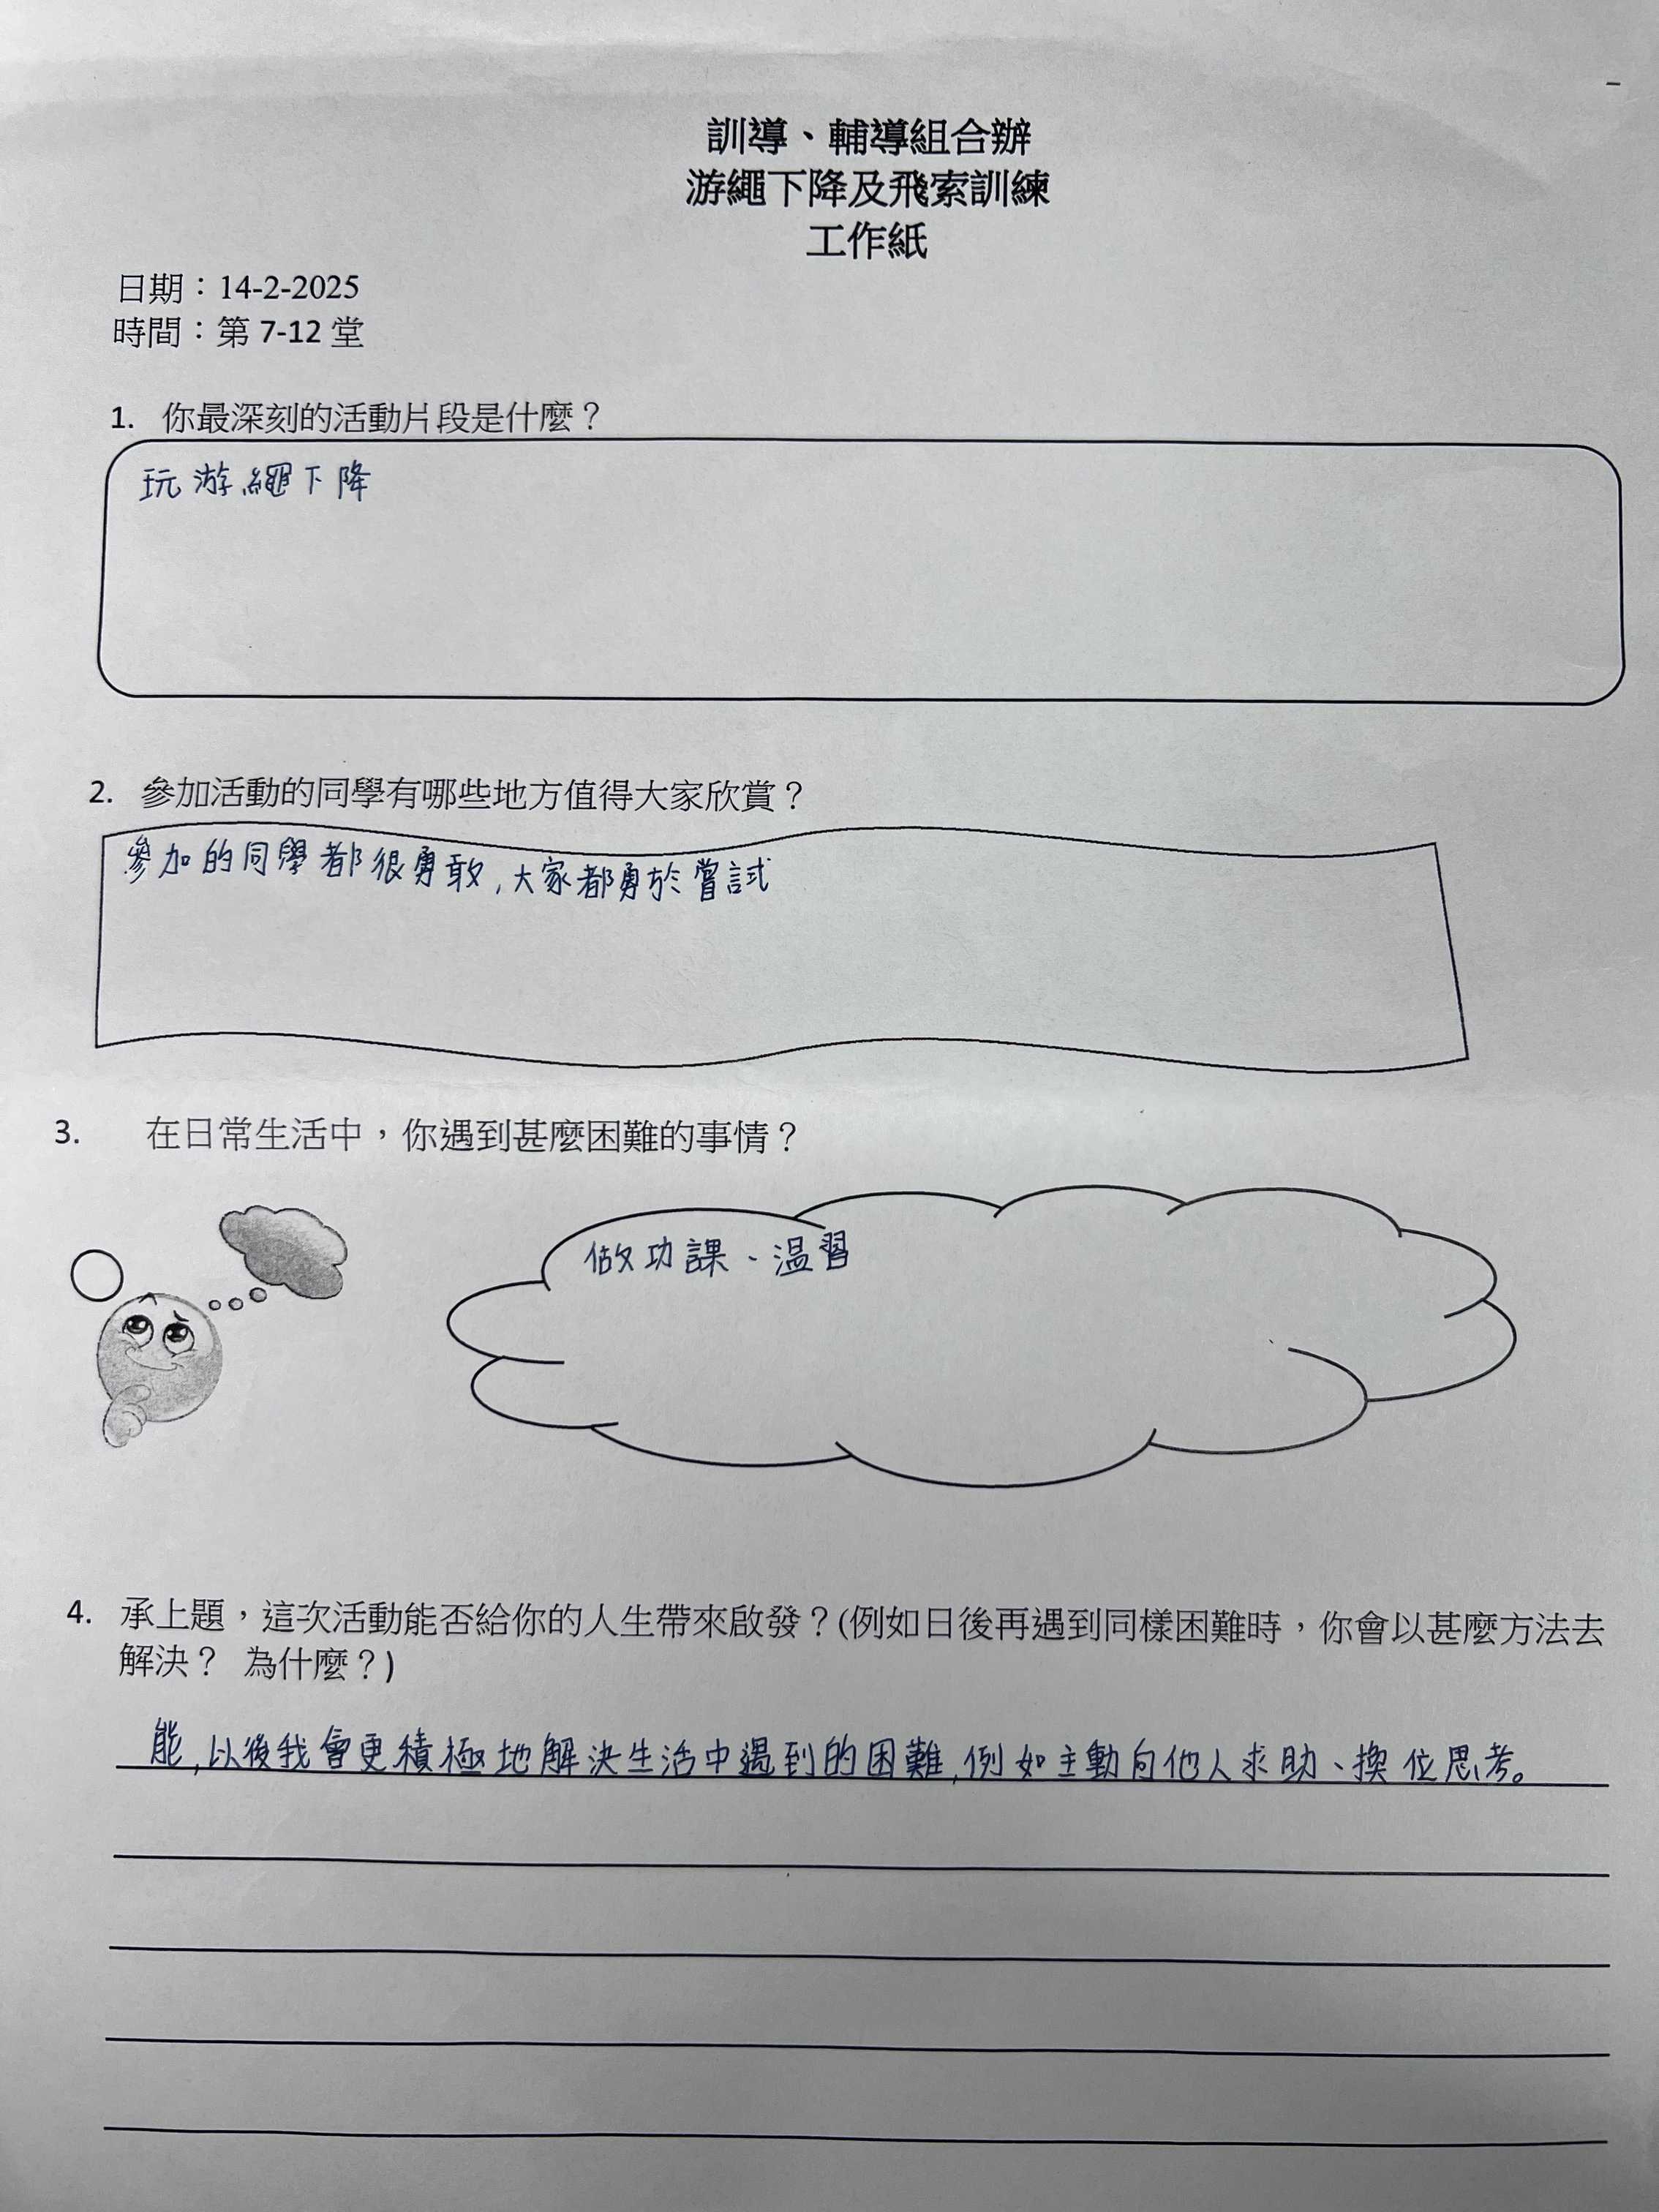 訓導、輔導組合辦
游繩下降及飛索訓練
工作紙
日期：14-2-2025
時間：第 7-12 堂
1. 你最深刻的活動片段是什麼？
玩游繩下降
2. 參加活動的同學有哪些地方值得大家欣賞？
參加的同學都很勇敢，大家都勇於嘗試
3. 在日常生活中，你遇到甚麼困難的事情？
做功課、温習
4. 承上題，這次活動能否給你的人生帶來啟發？(例如日後再遇到同樣困難時，你會以甚麼方法去
解決？ 為什麼？)
能，以後我會更積極地解決生活中遇到的困難，例如主動向他人求助、換位思考。